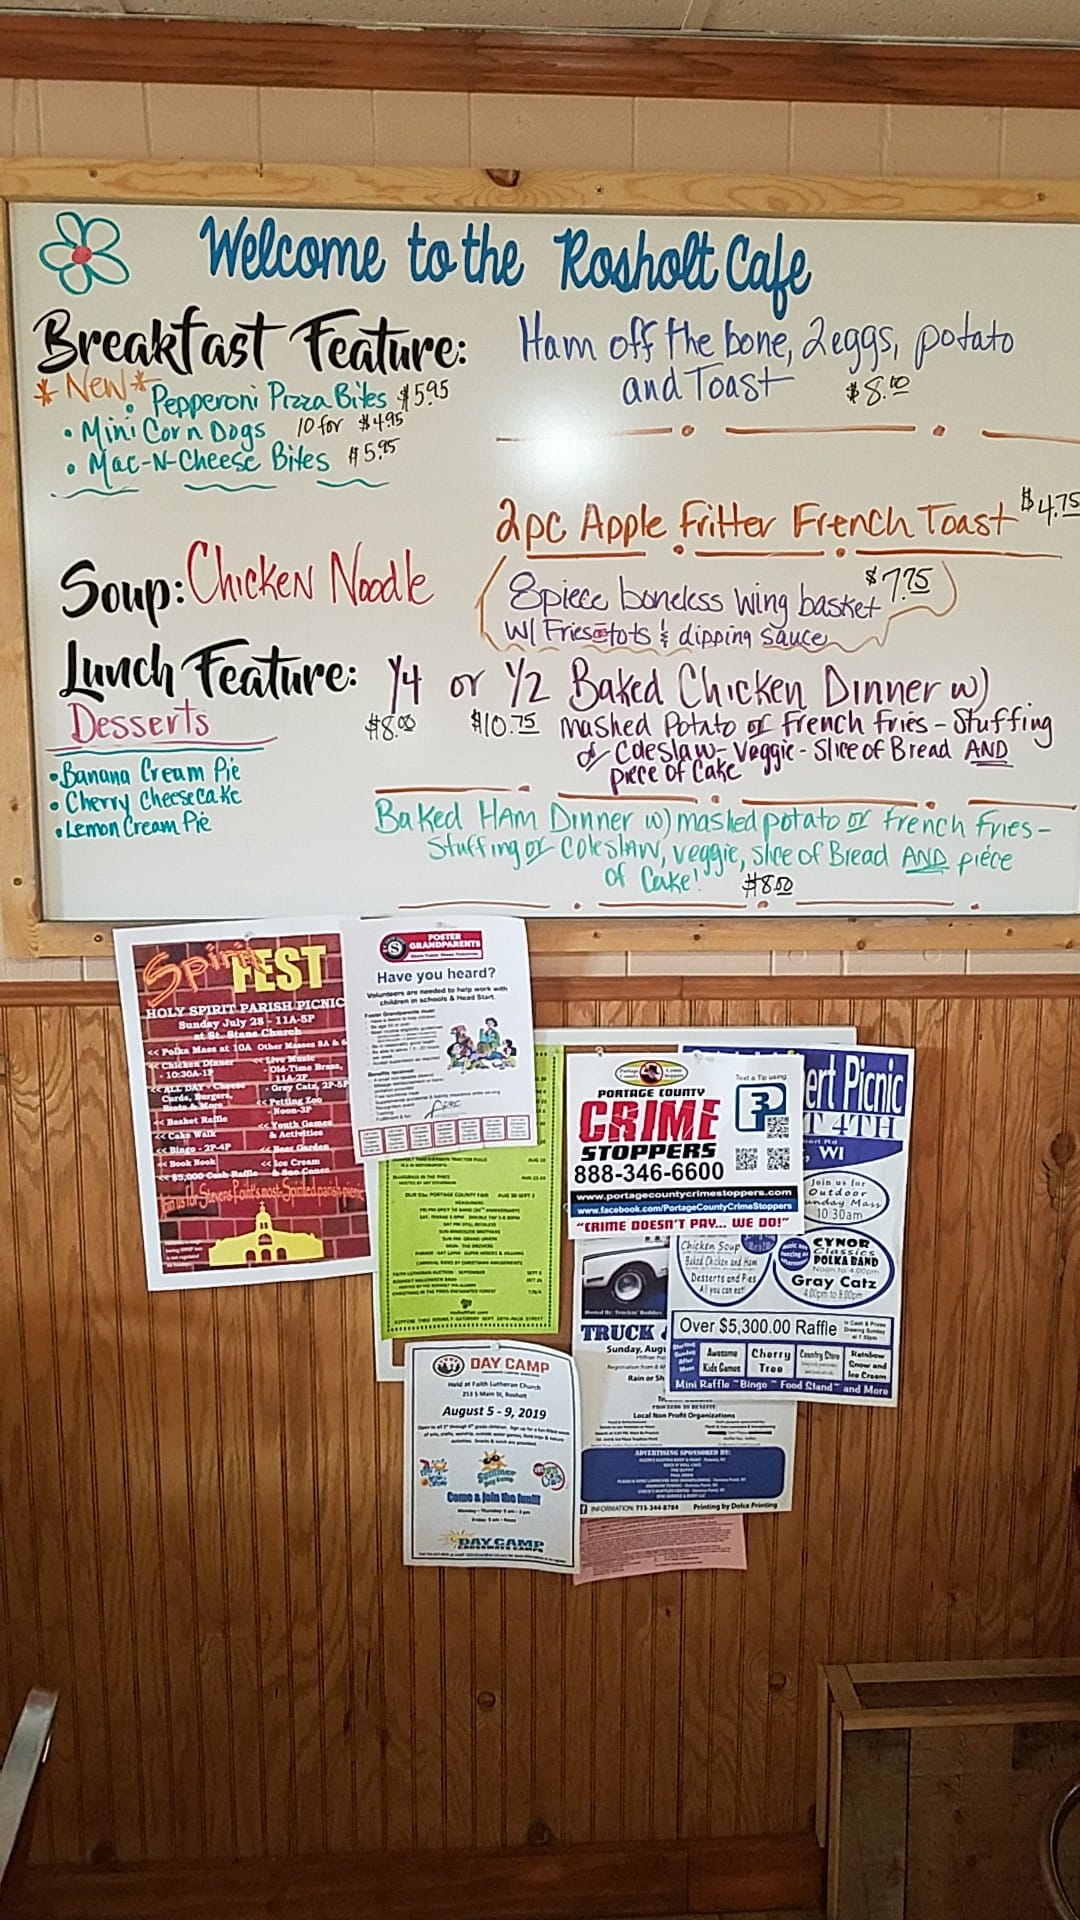 Welcome to the Rosholt Cafe
Breakfast Feature:
Ham off the bone, 2 eggs, potato
and Toast $8.10
*New*
• Pepperoni Pizza Bites $5.95
• Mini Corn Dogs 10 for $4.95
• Mac-N-Cheese Bites $5.95
2pc Apple Fritter French Toast $4.75
Soup: Chicken Noodle
8 piece boneless wing basket $7.75
w/ Fries or tots & dipping sauce
Lunch Feature:
1/4 or 1/2 Baked Chicken Dinner w)
$8.00 $10.75 mashed Potato or French Fries - Stuffing
or Coleslaw - Veggie - Slice of Bread AND
piece of Cake
Desserts
• Banana Cream Pie
• Cherry Cheesecake
• Lemon Cream Pie
Baked Ham Dinner w) mashed potato or French Fries -
Stuffing or Coleslaw, veggie, slice of Bread AND piece
of Cake! $8.00
Spirit FEST
HOLY SPIRIT PARISH PICNIC
Sunday July 28 - 11A-5P
at St. Stans Church
<< Polka Mass at 10A Other Masses 8A & 6
<< Chicken Dinner
- 10:30A-1P
<< ALL DAY - Cheese
Curds, Burgers,
Brats & More
<< Basket Raffle
<< Cake Walk
<< Bingo - 2P-4P
<< Book Nook
<< $5,000 Cash Raffle
<< Live Music
- Old-Time Brass,
11A-2P
- Gray Catz, 2P-5P
<< Petting Zoo
- Noon-3P
<< Youth Games
& Activities
<< Beer Garden
<< Ice Cream
& Sno Cones
Join us for Stevens Point's most-Spirited parish picnic
FOSTER
GRANDPARENTS
Have you heard?
Volunteers are needed to help work with
children in schools & Head Start.
Foster Grandparents must:
Benefits received:
PORTAGE COUNTY
CRIME
STOPPERS
888-346-6600
www.portagecountycrimestoppers.com
www.facebook.com/PortageCountyCrimeStoppers
"CRIME DOESN'T PAY... WE DO!"
Text a Tip using:
P3
ert Picnic
T 4TH
, WI
Join us for
Outdoor
unday Mass
10:30am
Chicken Soup
Baked Chicken and Ham
Desserts and Pies
All you can eat!
CYNOR
Classics
POLKA BAND
Noon to 4:00pm
Gray Catz
4:00pm to 8:00pm
Over $5,300.00 Raffle
Awesome
Kids Games
Cherry
Tree
Country Store
Rainbow
Snow and
Ice Cream
Mini Raffle ~ Bingo ~ Food Stand ~ and More
TRUCK
Sunday, Augu
Rain or Sh
Local Non Profit Organizations
ADVERTISING SPONSORED BY:
INFORMATION: 715-344-8784 Printing by Dolce Printing
DAY CAMP
Held at Faith Lutheran Church
253 S Main St, Rosholt
August 5 - 9, 2019
Come & join the fun!!!
DAY CAMP
CROSSWAYS CAMPS